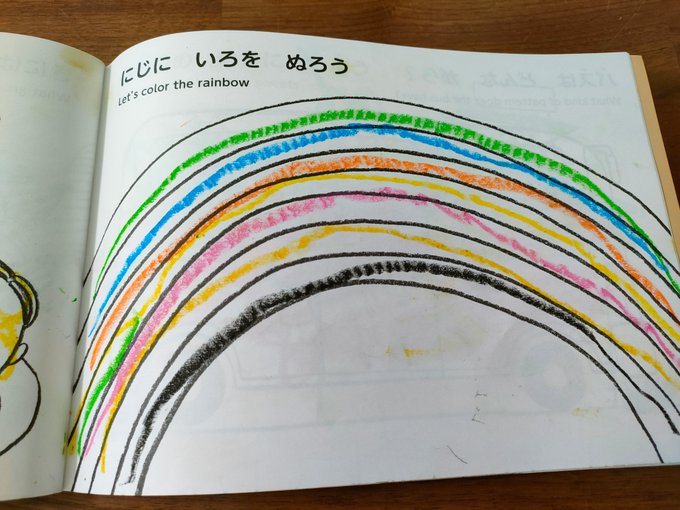 にじに　いろを　ぬろう
Let's color the rainbow